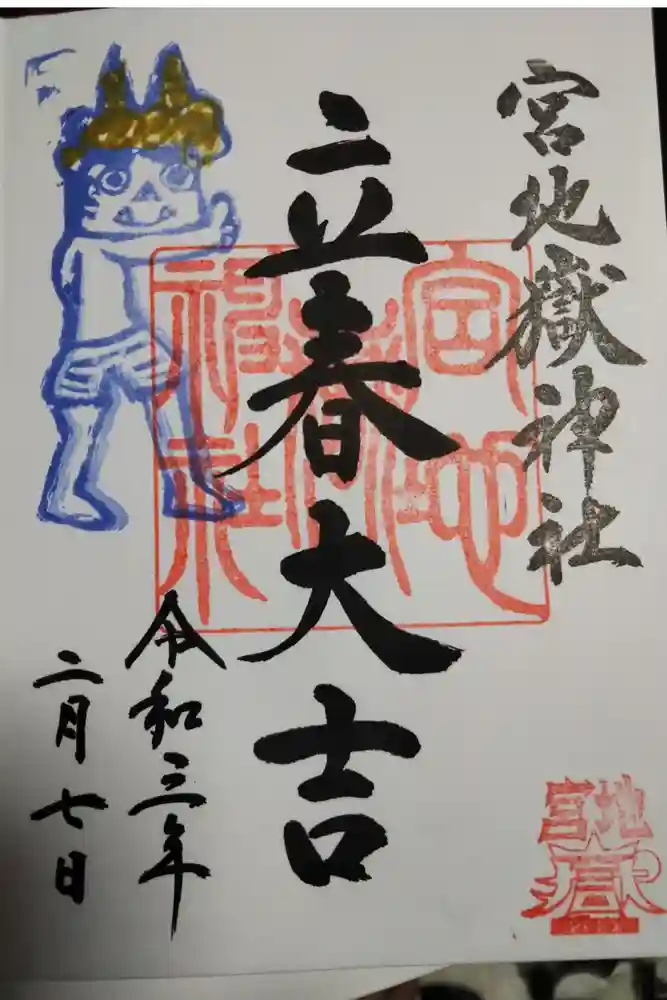 宮地嶽神社
立春大吉
令和三年
二月七日
宮地
嶽
神社
宮地
嶽